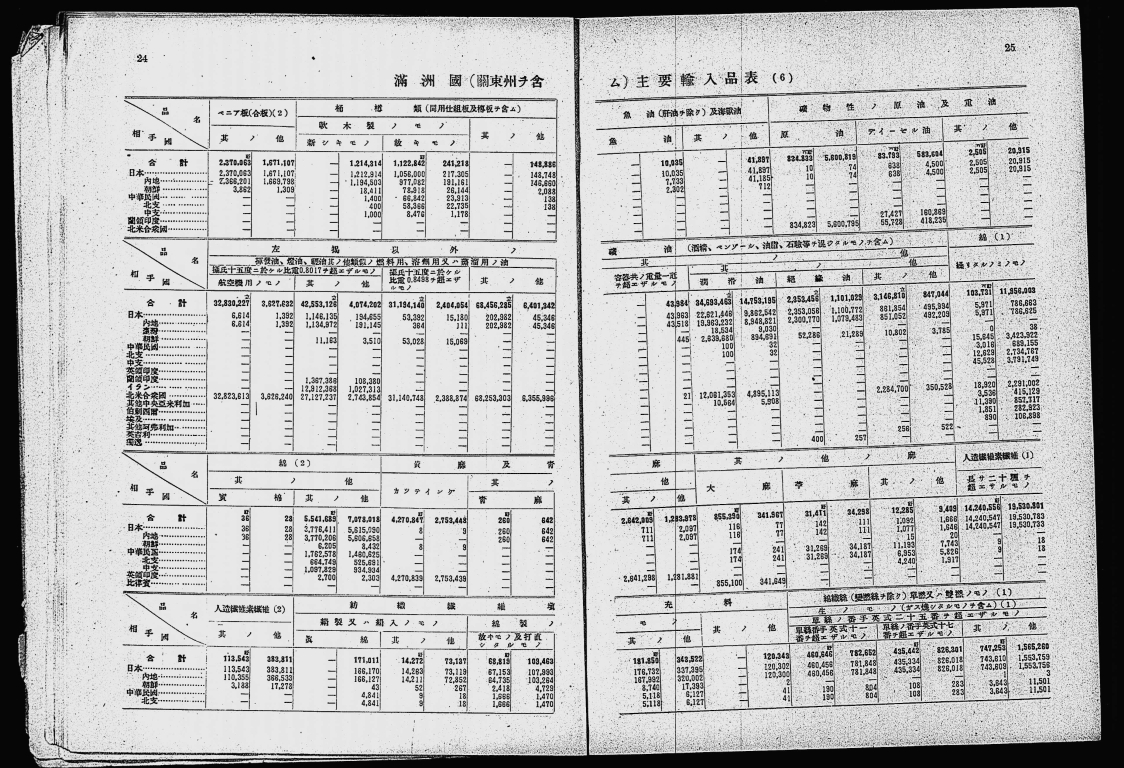 24
滿洲國(關東州ヲ含
品名
相手國
ベニア板(合板)(2)
桶樽類(同用仕組板及樽板ヲ含ム)
軟木製ノモノ
其ノ他
其ノ他
新シキモノ
其ノ他
合計 2,370,063 1,671,107 — 1,214,314 1,122,842 241,218 — 148,886
日本 2,370,063 1,671,107 — 1,212,914 1,056,000 217,305 — 148,748
內地 2,366,201 1,669,798 — 1,194,503 977,082 191,161 — 146,660
朝鮮 3,862 1,309 — 18,411 78,918 26,144 — 2,088
中華民國 — — — 1,400 66,842 23,913 — 138
北支 — — — 400 58,366 22,735 — 138
中支 — — — 1,000 8,476 1,178 — —
蘭領印度
北米合衆國
品名
相手國
左揭以外ノ
揮發油、燈油、輕油其ノ他類似ノ燃料用、溶劑用又ハ
攝氏十五度ニ於ケル比重0.8017ヲ超エザルモノ
攝氏十五度ニ於ケル比重0.8498ヲ超エザルモノ
航空機用ノモノ
其ノ他
合計 32,830,227 3,627,632 42,553,126 4,074,202 31,194,140 2,404,054 68,456,285 6,401,342
日本 6,614 1,392 1,146,135 194,655 53,392 15,180 202,982 45,346
內地 6,614 1,392 1,134,972 191,145 364 111 202,982 45,346
朝鮮 — — 11,163 3,510 53,028 15,069 — —
中華民國
北支
中支
英領印度
蘭領印度 — — 1,367,386 108,380
イラン — — 12,912,368 1,027,313
北米合衆國 32,823,613 3,626,240 27,127,237 2,743,854 31,140,748 2,388,874 68,253,303 6,355,996
其他中央亞米利加
伯剌西爾
埃及
其他阿弗利加
英吉利
獨逸
品名
相手國
綿(2)
黃麻及靑
其ノ他
カツテイング
其ノ
實棉
其ノ他
靑麻
合計 36 28 5,541,689 7,078,018 4,270,847 2,753,448 260 642
日本 36 28 3,776,411 5,615,090 8 9 260 642
內地 36 28 3,770,206 5,606,658 — — 260 642
朝鮮 — — 6,205 8,432 8 9 — —
中華民國 — — 1,762,578 1,460,625
北支 — — 664,749 525,691
中支 — — 1,097,829 934,934
英領印度 — — 2,700 2,303 4,270,839 2,753,439
比律賓
品名
相手國
人造纖維素纖維(2)
紡織纖維塡
絹製又ハ絹入ノモノ
綿製ノ
其ノ他
眞綿
其ノ他
放キモノ及打直シタルモノ
合計 113,543 383,811 — 171,011 14,272 73,137 68,819 109,463
日本 113,543 383,811 — 166,170 14,263 73,119 67,153 107,993
內地 110,355 366,533 — 166,127 14,211 72,852 64,735 103,264
朝鮮 3,188 17,278 — 43 52 267 2,418 4,729
中華民國 — — — 4,841 9 18 1,666 1,470
北支 — — — 4,841 9 18 1,666 1,470
25
ム)主要輸入品表(6)
魚油(肝油ヲ除ク)及海獸油
礦物性ノ原油及重油
魚油
其ノ他
原油
ディーゼル油
其ノ他
— 10,035 — 41,897 834,833 5,600,819 83,793 583,604 2,505 20,915
— 10,035 — 41,897 10 74 638 4,500 2,505 20,915
— 7,733 — 41,185 10 74 638 4,500 2,505 20,915
— 2,302 — 712
27,427 160,869
834,823 5,600,795 55,728 418,235
礦油
(酒精、ベンゾール、油脂、石鹼等ヲ混ジタルモノヲ含ム)
綿(1)
其ノ他
容器共ノ重量一
其ノ他
潤滑油
絕緣油
其ノ他
繰リタルノミノモノ
— 43,984 34,693,463 14,753,195 2,353,456 1,101,029 3,146,810 847,044 103,731 11,956,003
— 43,963 22,621,448 9,862,542 2,353,056 1,100,772 861,854 495,994 5,971 786,663
— 43,518 19,963,232 8,948,821 2,300,770 1,079,483 851,052 492,209 5,971 786,625
18,534 9,030 — — — — 0 38
445 2,639,680 894,691 52,286 21,289 10,802 3,785 15,645 3,423,922
100 32 3,016 689,155
100 32 12,629 2,734,767
45,528 3,791,749
2,284,700 350,528 18,920 2,291,002
21 12,061,353 4,895,113 3,536 415,129
10,564 5,508 11,390 852,317
1,851 282,923
256 522 890 106,898
400 257
麻
其ノ他ノ麻
人造纖維素纖維(1)
他
大麻
苧麻
其ノ他
長サ二十糎ヲ超エザルモノ
其ノ他
2,642,009 1,283,978 855,390 341,967 31,471 34,298 12,285 9,409 14,240,556 19,530,801
711 2,097 116 77 142 111 1,092 1,666 14,240,547 19,530,783
711 2,097 116 77 142 111 1,077 1,646 14,240,547 19,530,733
15 20
174 241 31,269 34,187 11,193 7,743 9 18
174 241 31,269 34,187 6,953 5,826 9 18
4,240 1,917
2,641,298 1,281,881
855,100 341,649
充料
紡織絲(變撚絲ヲ除ク)單撚又ハ雙撚ノモノ(1)
生ノモノ(ガス燒シタルモノヲ含ム)(1)
モノ
其ノ他
單絲ノ番手英式二十五番ヲ超エザルモノ
單絲番手英式十一番ヲ超エザルモノ
單絲ノ番手英式十七番ヲ超エザルモノ
其ノ他
其ノ他
181,850 343,522 — 120,343 460,646 782,652 435,442 826,301 747,253 1,565,260
176,732 337,395 — 120,302 460,456 781,848 435,334 826,018 743,610 1,553,759
167,992 320,002 — 120,300 460,456 781,848 435,334 826,018 743,609 1,553,756
8,740 17,393 — 2 — — — — 1 3
5,118 6,127 — 41 190 804 108 283 3,643 11,501
5,118 6,127 — 41 190 804 108 283 3,643 11,501